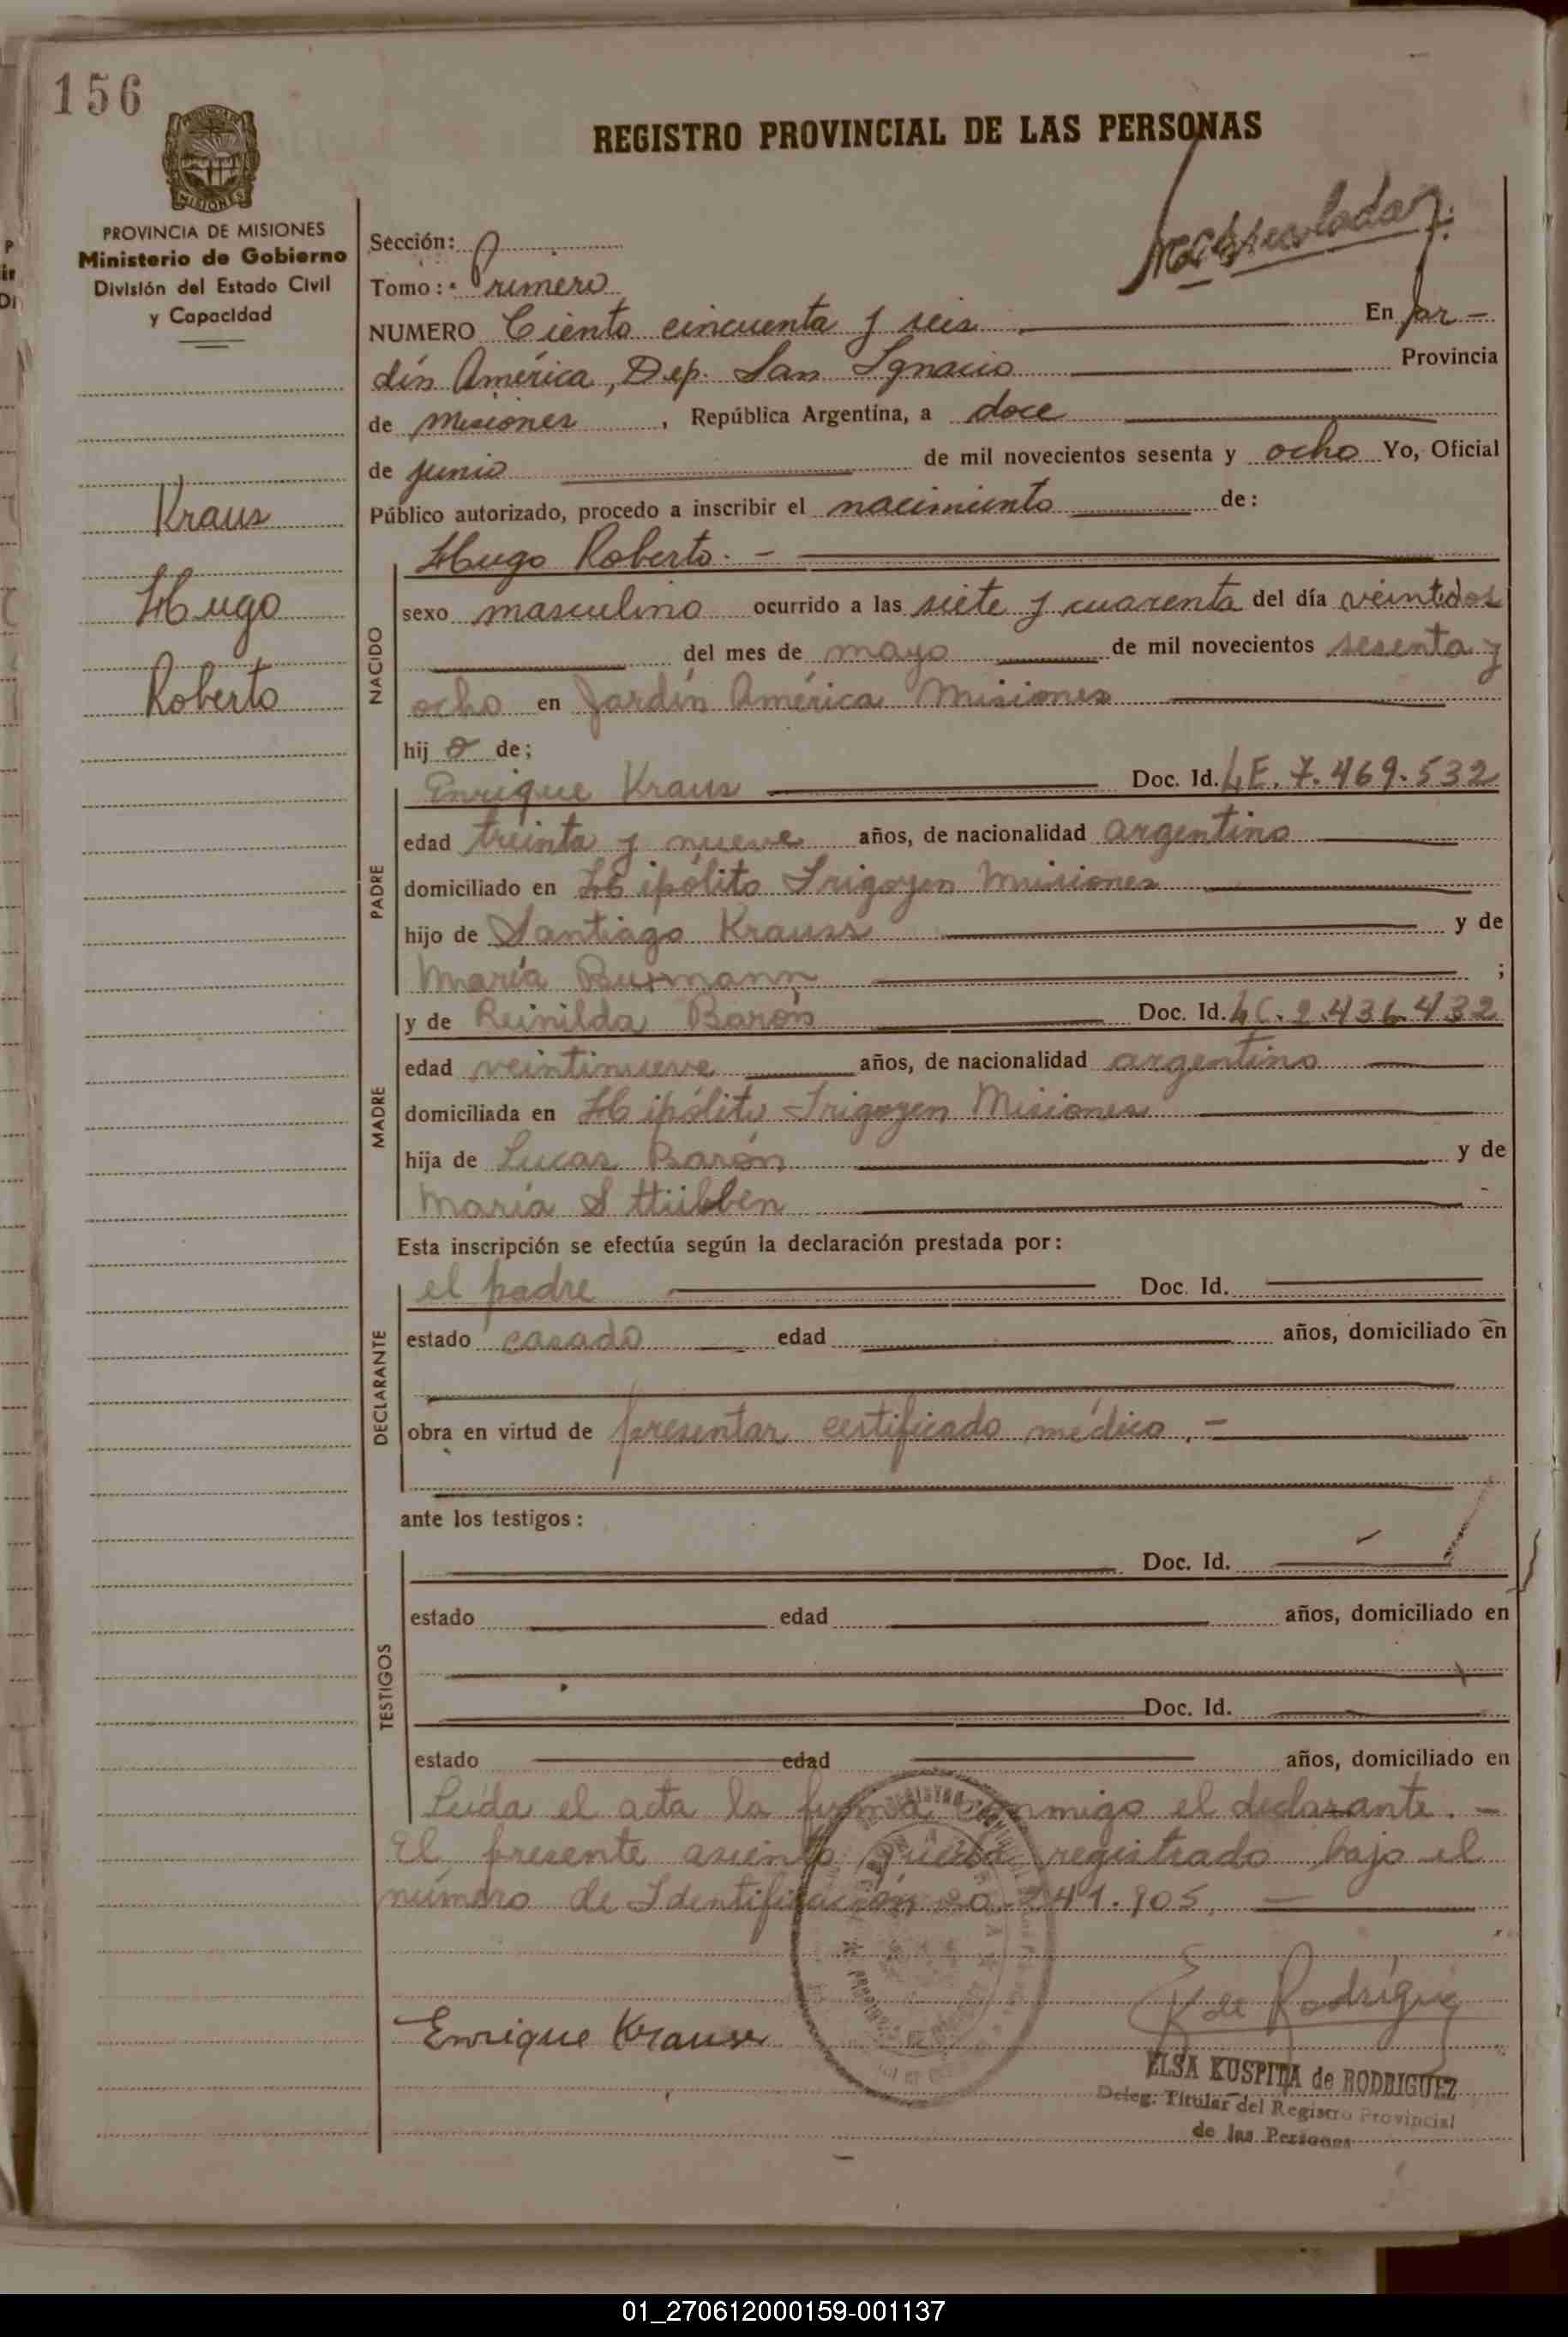 156
REGISTRO PROVINCIAL DE LAS PERSONAS
PROVINCIA DE MISIONES
Ministerio de Gobierno
División del Estado Civil
y Capacidad
Kraus
Hugo
Roberto
Sección:
Tomo: Primero
NUMERO Ciento cincuenta y seis En Jar-
dín América, Dep. San Ignacio Provincia
de Misiones, República Argentina, a doce
de junio de mil novecientos sesenta y ocho Yo, Oficial
Público autorizado, procedo a inscribir el nacimiento de:
NACIDO
Hugo Roberto. -
sexo masculino ocurrido a las siete y cuarenta del día veintidos
del mes de mayo de mil novecientos sesenta y
ocho en Jardín América Misiones
hijo de;
PADRE
Enrique Kraus Doc. Id. LE. 7.469.532
edad treinta y nueve años, de nacionalidad argentino
domiciliado en Hipólito Irigoyen Misiones
hijo de Santiago Krauss y de
María ;
MADRE
y de Reinilda Barón Doc. Id. LC. 2.436.432
edad veintinueve años, de nacionalidad argentino
domiciliada en Hipólito Irigoyen Misiones
hija de Lucas Barón y de
María
Esta inscripción se efectúa según la declaración prestada por:
DECLARANTE
el padre Doc. Id.
estado casado edad años, domiciliado en
obra en virtud de presentar certificado médico. -
ante los testigos:
TESTIGOS
Doc. Id.
estado edad años, domiciliado en
Doc. Id.
estado edad años, domiciliado en
Leída el acta la firma conmigo el declarante. -
El presente asiento queda registrado bajo el
número de Identificación 20.241.905.
Enrique Kraus
de Rodríguez
ELSA KUSPITA de RODRIGUEZ
Deleg. Titular del Registro Provincial
de las Personas
01_270612000159-001137